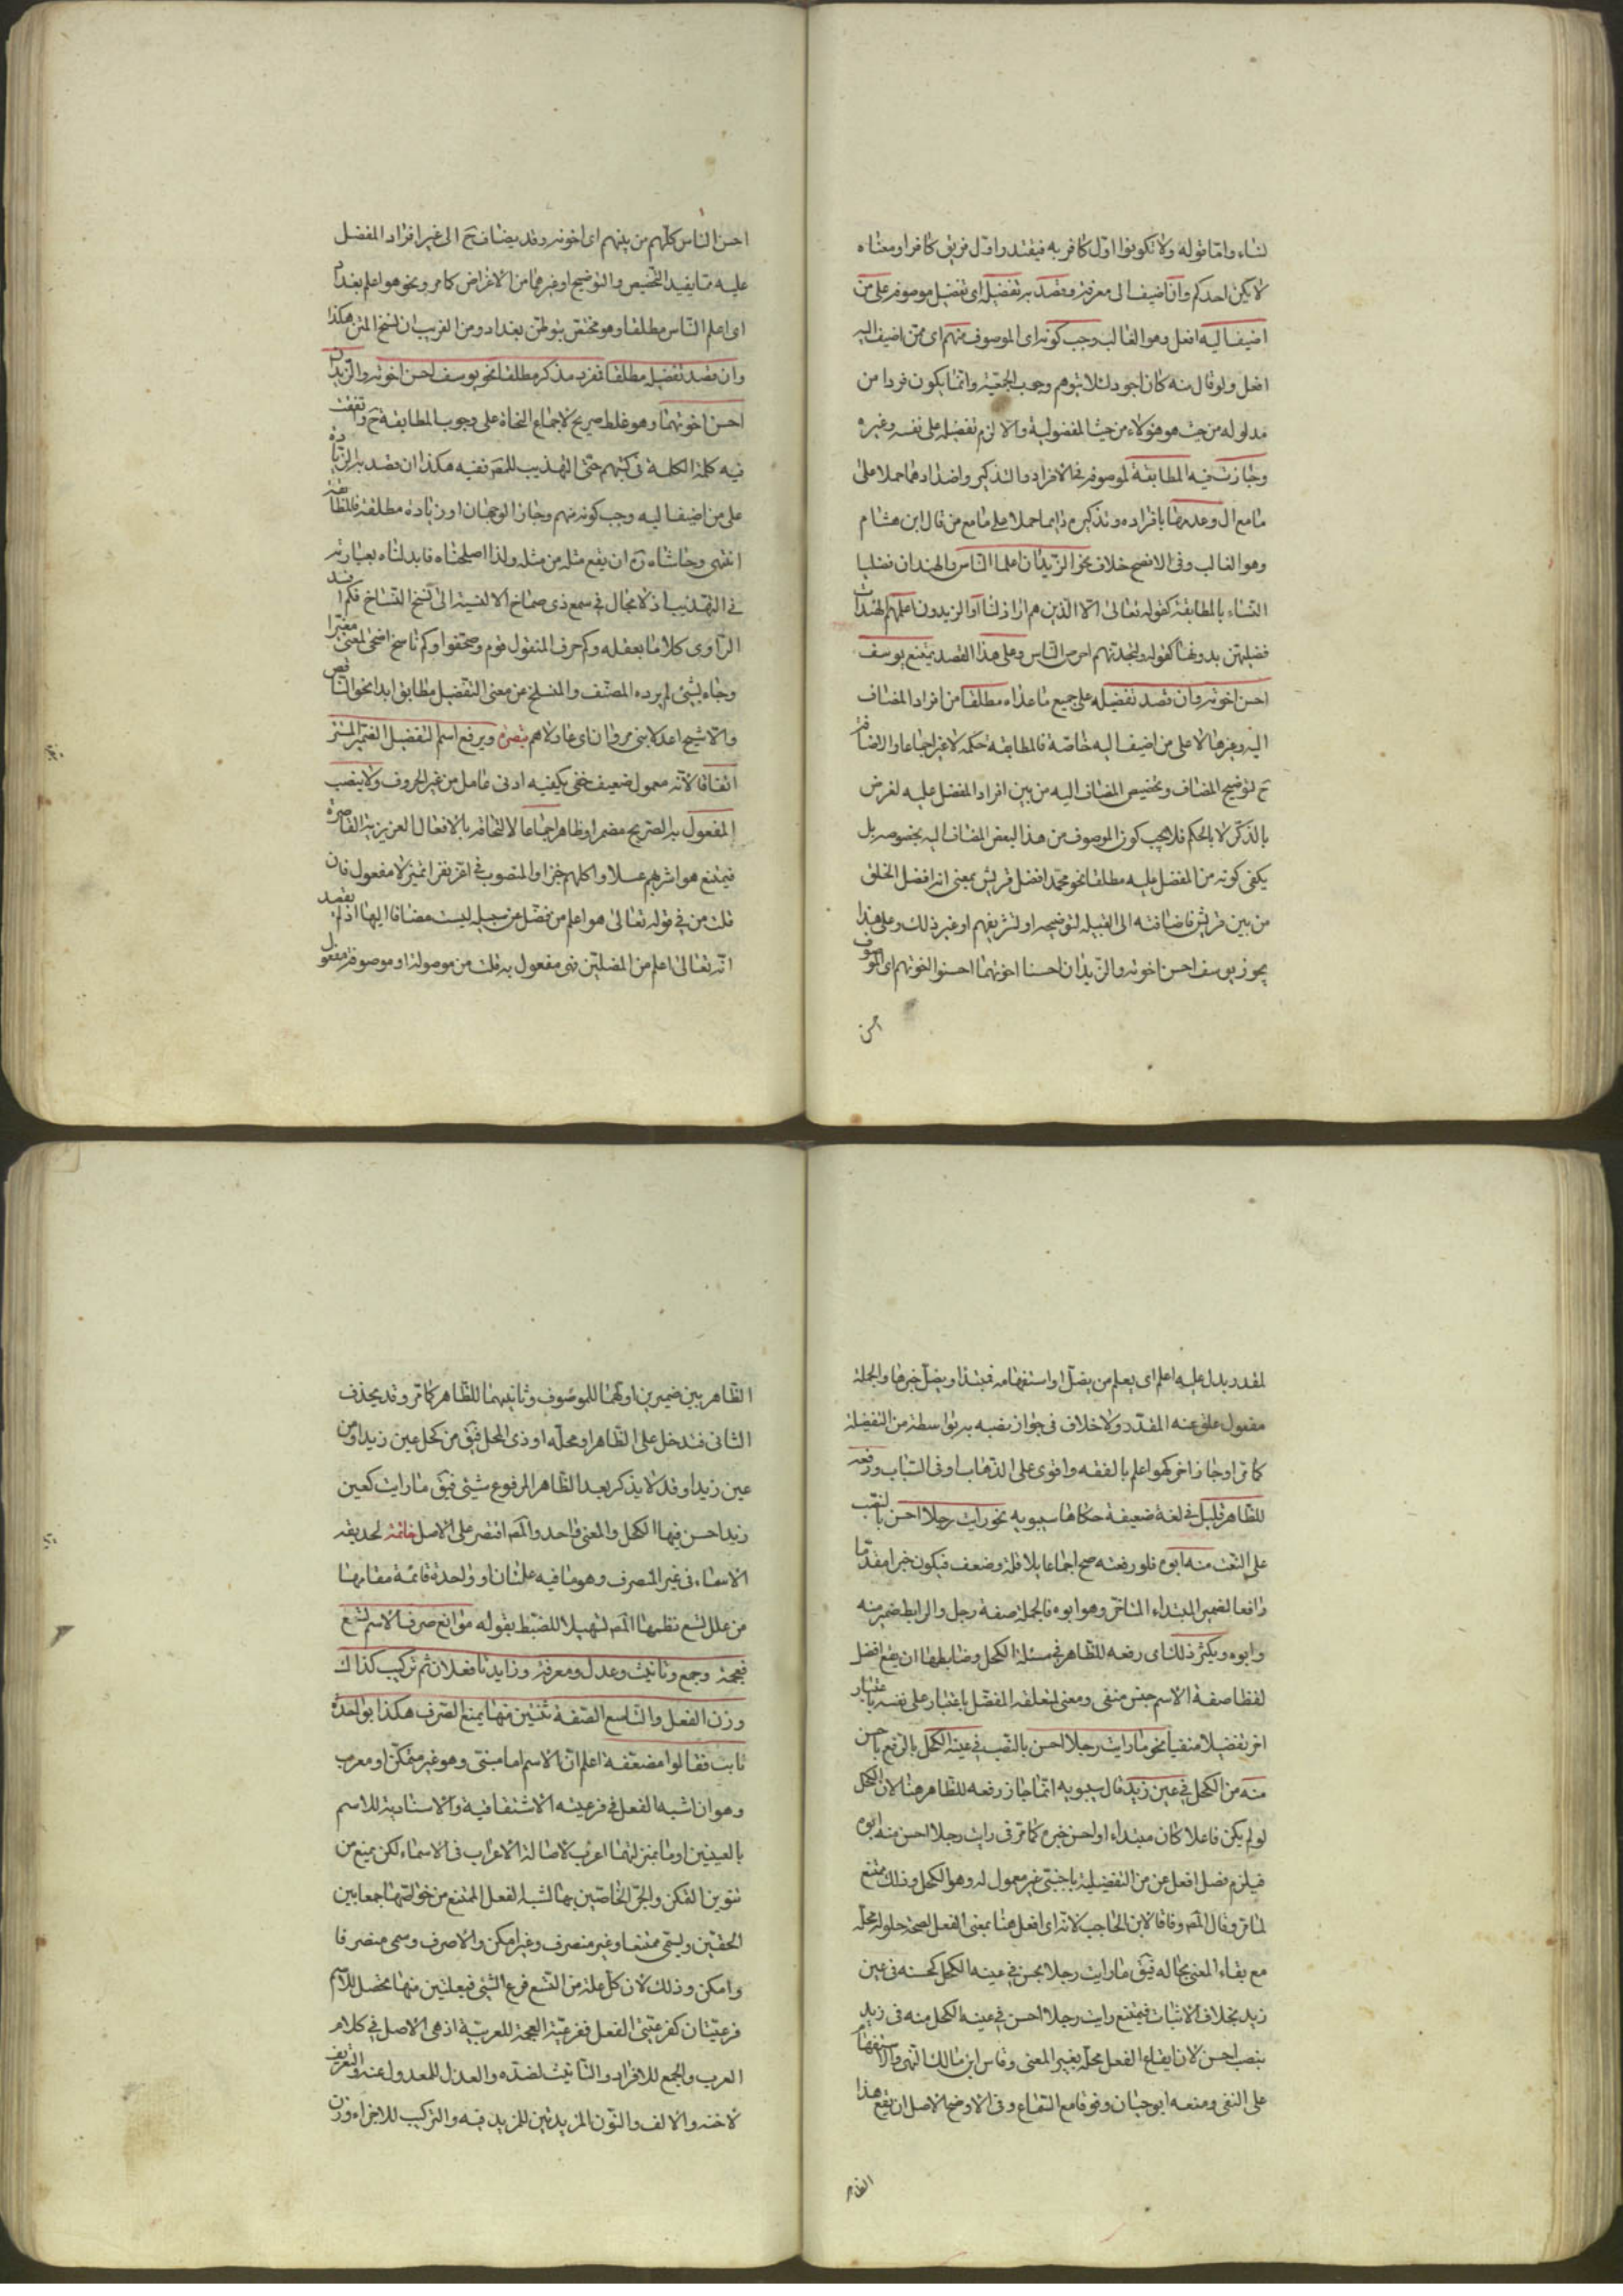 لنساء واما قوله ولا تكونوا اول كافر به فيقدر اول فريق كافر او معناه
لا يكن احدكم وان اضيف الى معرفة وقصد به تفضيله اى تفضيل موصوفه على من
اضيف اليه افعل وهو الغالب وجب كونه اى الموصوف منهم اى ممن اضيف اليه
افعل ولو قال منه كان اجود لئلا يتوهم وجوب الجمعية وانما يكون فردا من
مدلوله من حيث هو هو لا من حيث المفضولية والا لزم تفضيله على نفسه وغيره
وجازت فيه المطابقة لموصوفه فى الافراد والتذكير واضدادهما حملا على
ما مع ال وعدمها بافراده وتذكيره دايما حملا على ما مع من قال ابن هشام
وهو الغالب وفى الافصح خلاف نحو الزيدان اعلما الناس والهندان فضليا
النساء بالمطابقة كقوله تعالى الا الذين هم اراذلنا او الزيدون اعلمهم والهندات
فضلهن بدونها كقوله ولتجدنهم احرص الناس وعلى هذا القصد يمتنع يوسف
احسن اخوته وان قصد تفضيله على جميع ما عداه مطلقا من افراد المضاف
اليه وغيرها لا على من اضيف اليه خاصة فالمطابقة حكمه لا غير اجماعا والاضافة
ح لتوضيح المضاف وتخصيص المضاف اليه من بين افراد المفضل عليه لغرض
بالذكر لا بالحكم فلا يجب كون الموصوف من هذا البعض المضاف اليه بخصوصه بل
يكفى كونه من المفضل عليه مطلقا نحو محمد افضل قريش بمعنى انه افضل الخلق
من بين قريش فاضافته الى القبيلة لتوضيحه او لتشريفهم او غير ذلك وعلى هذا
يجوز يوسف احسن اخوته والزيدان احسنا اخوتهما احسنوا اخوتهم اى الموصوف
احسن
احسن الناس كلهم من بينهم اى اخوته وقد يضاف ح الى غير افراد المفضل
عليه مما يفيد التخصيص والتوضيح او غيرهما من الاغراض كما مر ونحو هو اعلم بغداد
اى اعلم الناس مطلقا وهو مختص بتوطن بغداد ومن الغريب ان نسخ المتن هكذا
وان قصد تفضيله مطلقا فمفرد مذكر مطلقا نحو يوسف احسن اخوته والزيدان
احسن اخوتهما وهو غلط صريح لاجماع النحاة على وجوب المطابقة ح واتفقت
فيه كلمة الكلمة فى كتبهم حتى التهذيب للمص ففيه هكذا ان قصد به الزيادة
على من اضيف اليه وجب كونه منهم وجاز الوجهان او زيادة مطلقة فالمطابقة
انتهى وحاشاه ره ان يقع مثله من مثله ولذا اصلحناه فابدلناه بعبارته
فى التهذيب اذ لا مجال فى سمع ذى صماخ الا لنسبته الى نسخ النساخ فكم افسد
الراوى كلاما بعقله وكم حرف المنقول قوم وصحفوا وكم ناسخ اضحى لمعنى مغيرا
وجاء بشئ لم يرده المصنف والمنسلخ عن معنى التفضيل مطابق ابدا نحو الناقص
والاشج اعدلا بنى مروان اى عادلاهم تبصرة ويرفع اسم التفضيل الضمير المستتر
اتفاقا لانه معمول ضعيف خفى يكفيه ادنى عامل من غير الحروف ولا ينصب
المفعول به الصريح مضمرا وظاهرا اجماعا لالتحاقه بالافعال الغريزية القاصرة
فيمتنع هو اشربهم عسلا واكلهم خبزا والمنصوب فى اقر بقرا تميز لا مفعول فان
قلت من فى قوله تعالى هو اعلم من يضل عن سبيله ليست مضافا اليها اذ لم يقصد
انه تعالى اعلم من المضلين فهى مفعول به قلت من موصولة او موصوفة مفعول
لمقدر يدل عليه اعلم اى يعلم من يضل او استفهامية فمبتدا ويضل خبرها والجملة
مفعول علق عنه المقدر ولا خلاف فى جواز نصبه به بواسطة من التفضيلة
كما مر او جار اخر كهو اعلم بالفقه واقوى على الذهاب او فى السباب ورفعه
للظاهر قليل فى لغة ضعيفة حكاها سيبويه نحو رايت رجلا احسن بالنصب
على النعت منه ابوه فلو رفعته صح اجماعا بلا قلة وضعف فيكون خبرا مقدما
رافعا لضمير المبتداء المتاخر وهو ابوه فالجملة صفة رجل والرابط ضمير منه
وابوه ويكثر ذلك اى رفعه للظاهر فى مسئلة الكحل وضابطها ان يقع افضل
لفظا صفة الاسم جنس منفى ومعنى لمتعلقه المفضل باعتبار على نفسه باعتبار
اخر تفضيلا منفيا نحو ما رايت رجلا احسن بالنصب فى عينه الكحل بالرفع باحسن
منه من الكحل فى عين زيد قال سيبويه انما جاز رفعه للظاهر هنا لان الكحل
لو لم يكن فاعلا كان مبتداء او احسن خبره كما مر فى رايت رجلا احسن منه ابوه
فيلزم فصل افعل عن من التفضيلية باجنبى غير معمول له وهو الكحل وذلك ممتنع
لما مر وقال المص وفاقا لابن الحاجب لانه اى افعل هنا بمعنى الفعل لصحة حلوله محله
مع بقاء المعنى بحاله فيق ما رايت رجلا يحسن فى عينه الكحل كحسنه فى عين
زيد بخلاف الاثبات فيمتنع رايت رجلا احسن فى عينه الكحل منه فى زيد
بنصب احسن لان ايقاع الفعل محله يغير المعنى وقاس ابن مالك النهى والاستفهام
على النفى ومنعه ابو حيان وقوفا مع السماع وفى الاوضح الاصل ان يقع هذا
الظاهر
الظاهر بين ضميرين اولهما للموصوف وثانيهما للظاهر كما مر وقد يحذف
الثانى فتدخل على الظاهر او محله او ذى المحل فيق من كحل عين زيد او من
عين زيد او قد لا يذكر بعد الظاهر المرفوع شئى فيق ما رايت كعين
زيد احسن فيها الكحل والمعنى واحد والمص اقتصر على الاصل خاتمة لحديقة
الاسماء فى غير المنصرف وهو ما فيه علتان او واحدة قائمة مقامهما
من علل تسع نظمها المص تسهيلا للضبط بقوله موانع صرف الاسم تسع
فعجمة وجمع وتانيث وعدل ومعرفة وزايدتا فعلان ثم تركيب كذاك
وزن الفعل والتاسع الصفة ثنتين منها يمنع الصرف هكذا بواحدة
نابت فقالوا مضعفة اعلم ان الاسم اما مبنى وهو غير متمكن او معرب
وهو ان اشبه الفعل فى فرعيته الاشتقاقية والاسنادية للاسم
بالعينين او ما بمنزلتهما اعرب لاصالة الاعراب فى الاسماء لكن يمنع من
تنوين التمكن والجر الخاصتين بها لشبه الفعل الممتنع من خواصها جمعا بين
الحقين ويسمى ممتنعا وغير منصرف وغير امكن والا صرف وسمى منصرفا
وامكن وذلك لان كل علة من التسع فرع الشئى فبعلتين منها يحصل للاسم
فرعيتان كفرعيتى الفعل ففرعية العجمة للعربية اذ هى الاصل فى كلام
العرب والجمع للافراد والتانيث لضده والعدل للمعدول عنه والتعريف
لاخته والالف والنون المزيدتين للمزيد فيه والتركيب للاجزاء وزن